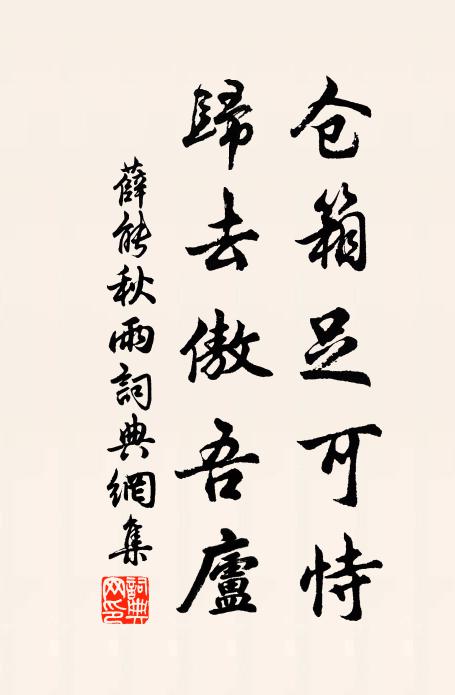 仓箱足可恃
歸去傲吾廬
薛能秋雨詞典網集
詞典網印